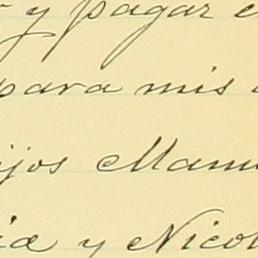 y pagar
para mis
ijos Manu
ia y Nicol